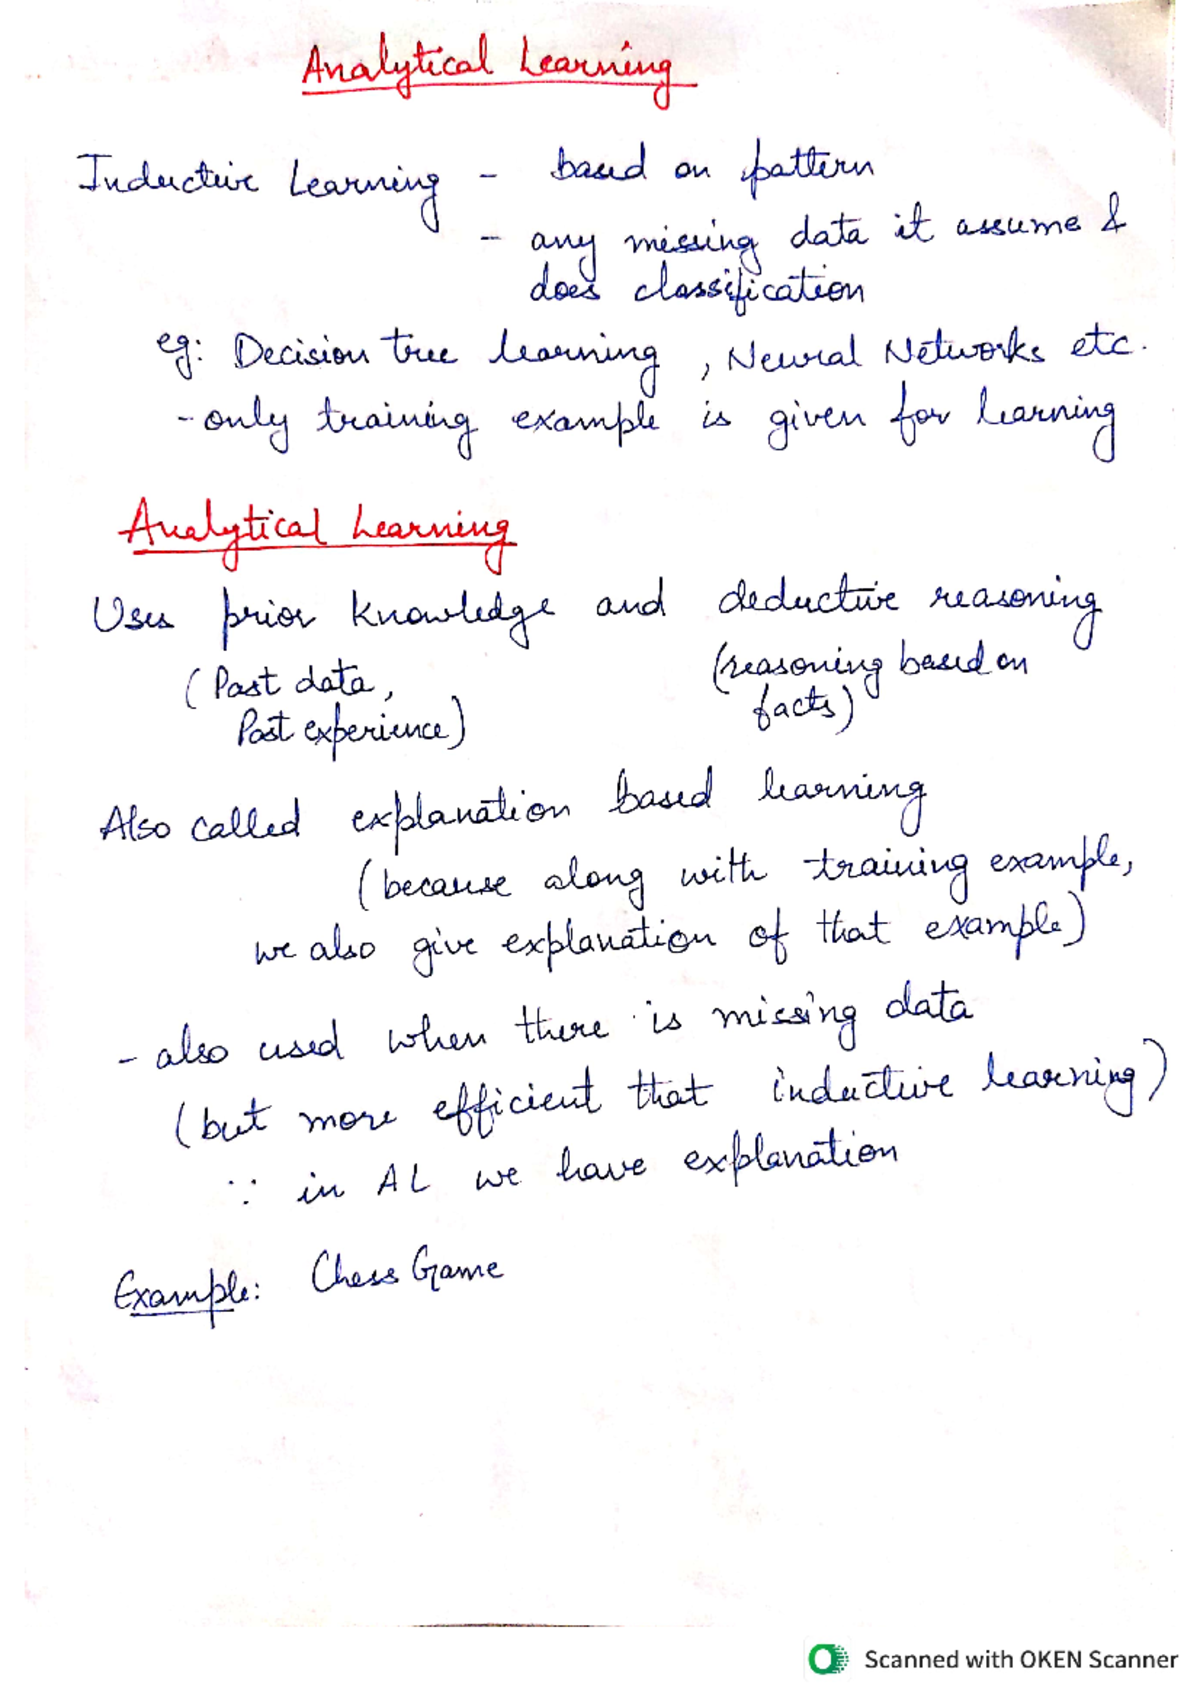 Analytical Learning
Inductive Learning - based on pattern
- any missing data it assume &
does classification
eg: Decision tree learning, Neural Networks etc.
- only training example is given for learning
Analytical Learning
Uses prior knowledge and deductive reasoning
(Past data, (reasoning based on
Past experience) facts)
Also called explanation based learning
(because along with training example,
we also give explanation of that example)
- also used when there is missing data
(but more efficient that inductive learning)
∵ in AL we have explanation
Example: Chess Game
Scanned with OKEN Scanner